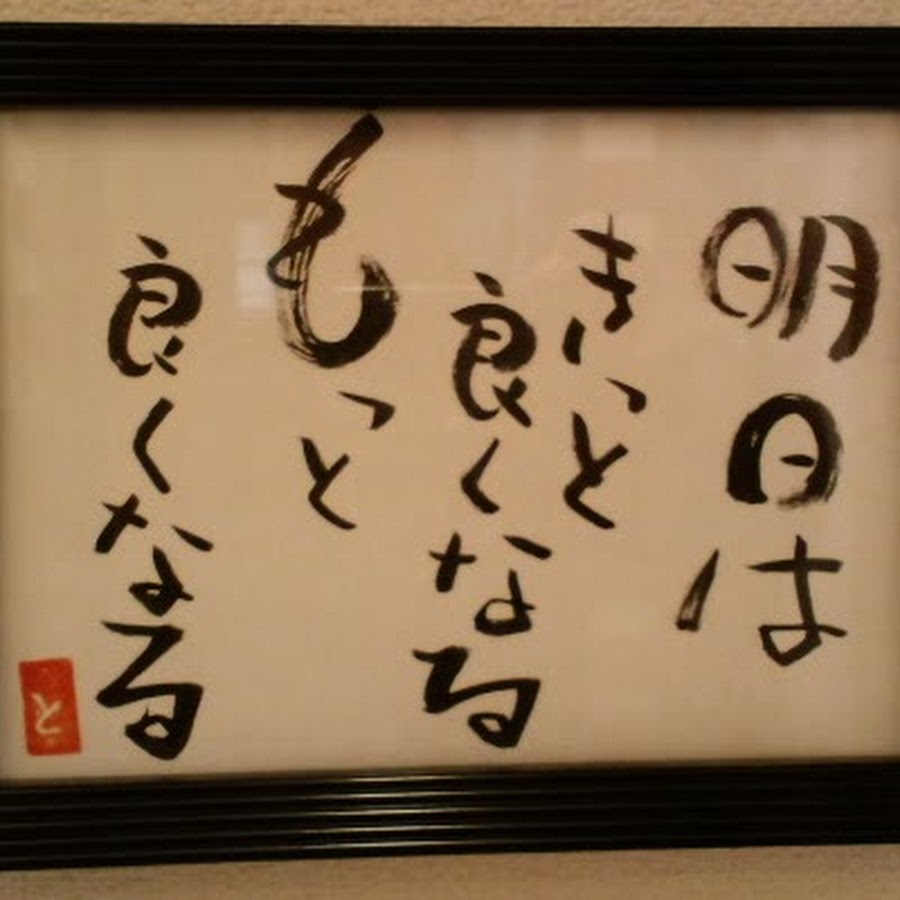 明日は
きっと
良くなる
もっと
良くなる
と